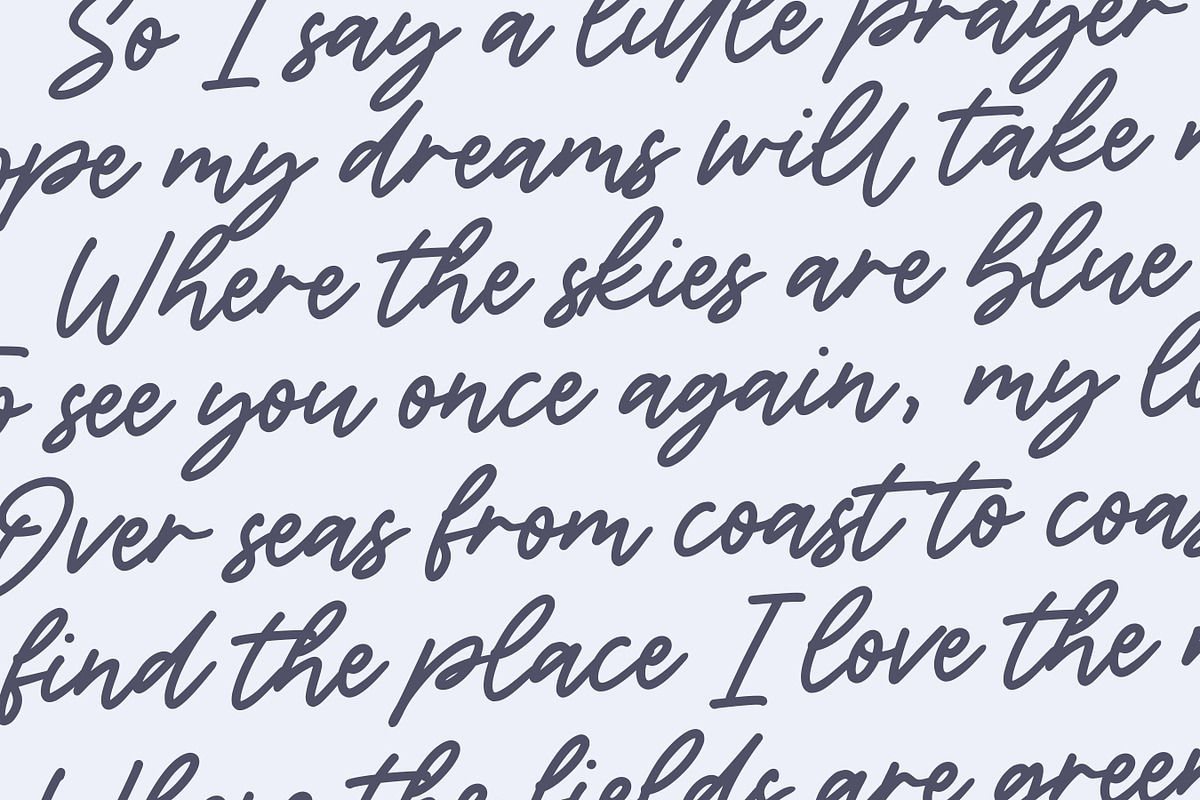 So I say a little prayer
ope my dreams will take
Where the skies are blue
To see you once again, my lo
Over seas from coast to coas
find the place I love the
Where the fields are green